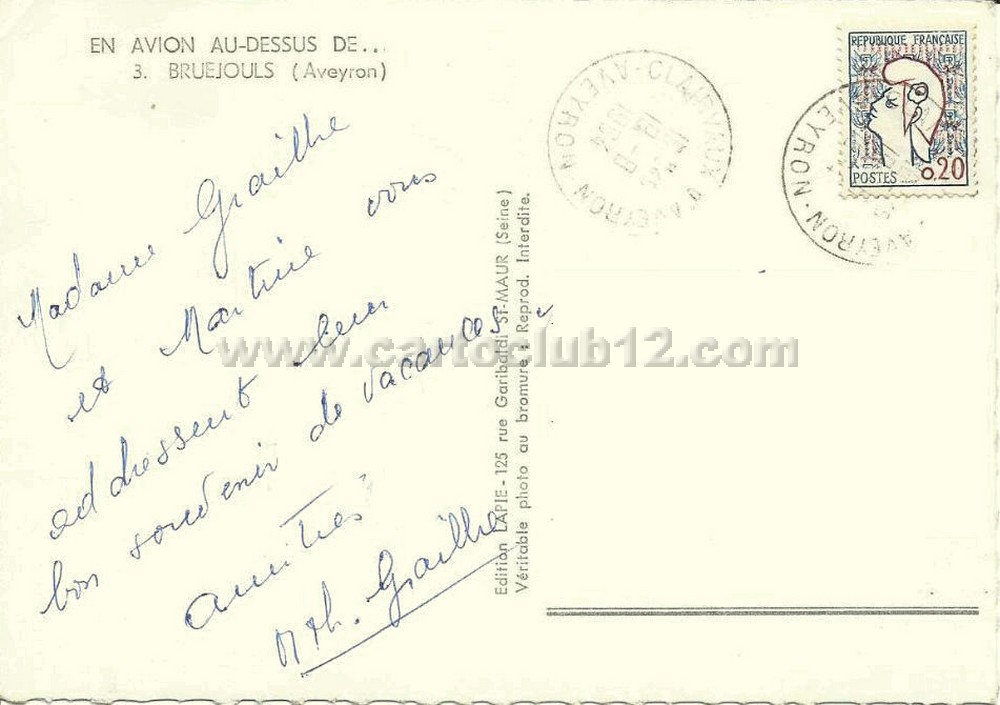 EN AVION AU-DESSUS DE...
3. BRUEJOULS (Aveyron)
Madame Grailhe
et Martine vous
addressent leur
bon souvenir de vacances
amitiés
Mth. Grailhe
Edition LAPIE - 125 rue Garibaldi ST-MAUR (Seine)
Véritable photo au bromure : Reprod. Interdite.
CLAIRVAUX D'AVEYRON
AVEYRON
REPUBLIQUE FRANÇAISE
POSTES 0.20
AVEYRON · AVEYRON
www.cartoclub12.com